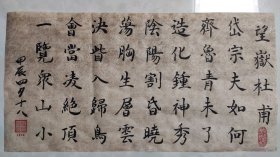 望嶽杜甫
岱宗夫如何
齊魯青未了
造化鍾神秀
陰陽割昏曉
蕩胸生層雲
決眥入歸鳥
會當凌絕頂
一覽衆山小
甲辰四月十八